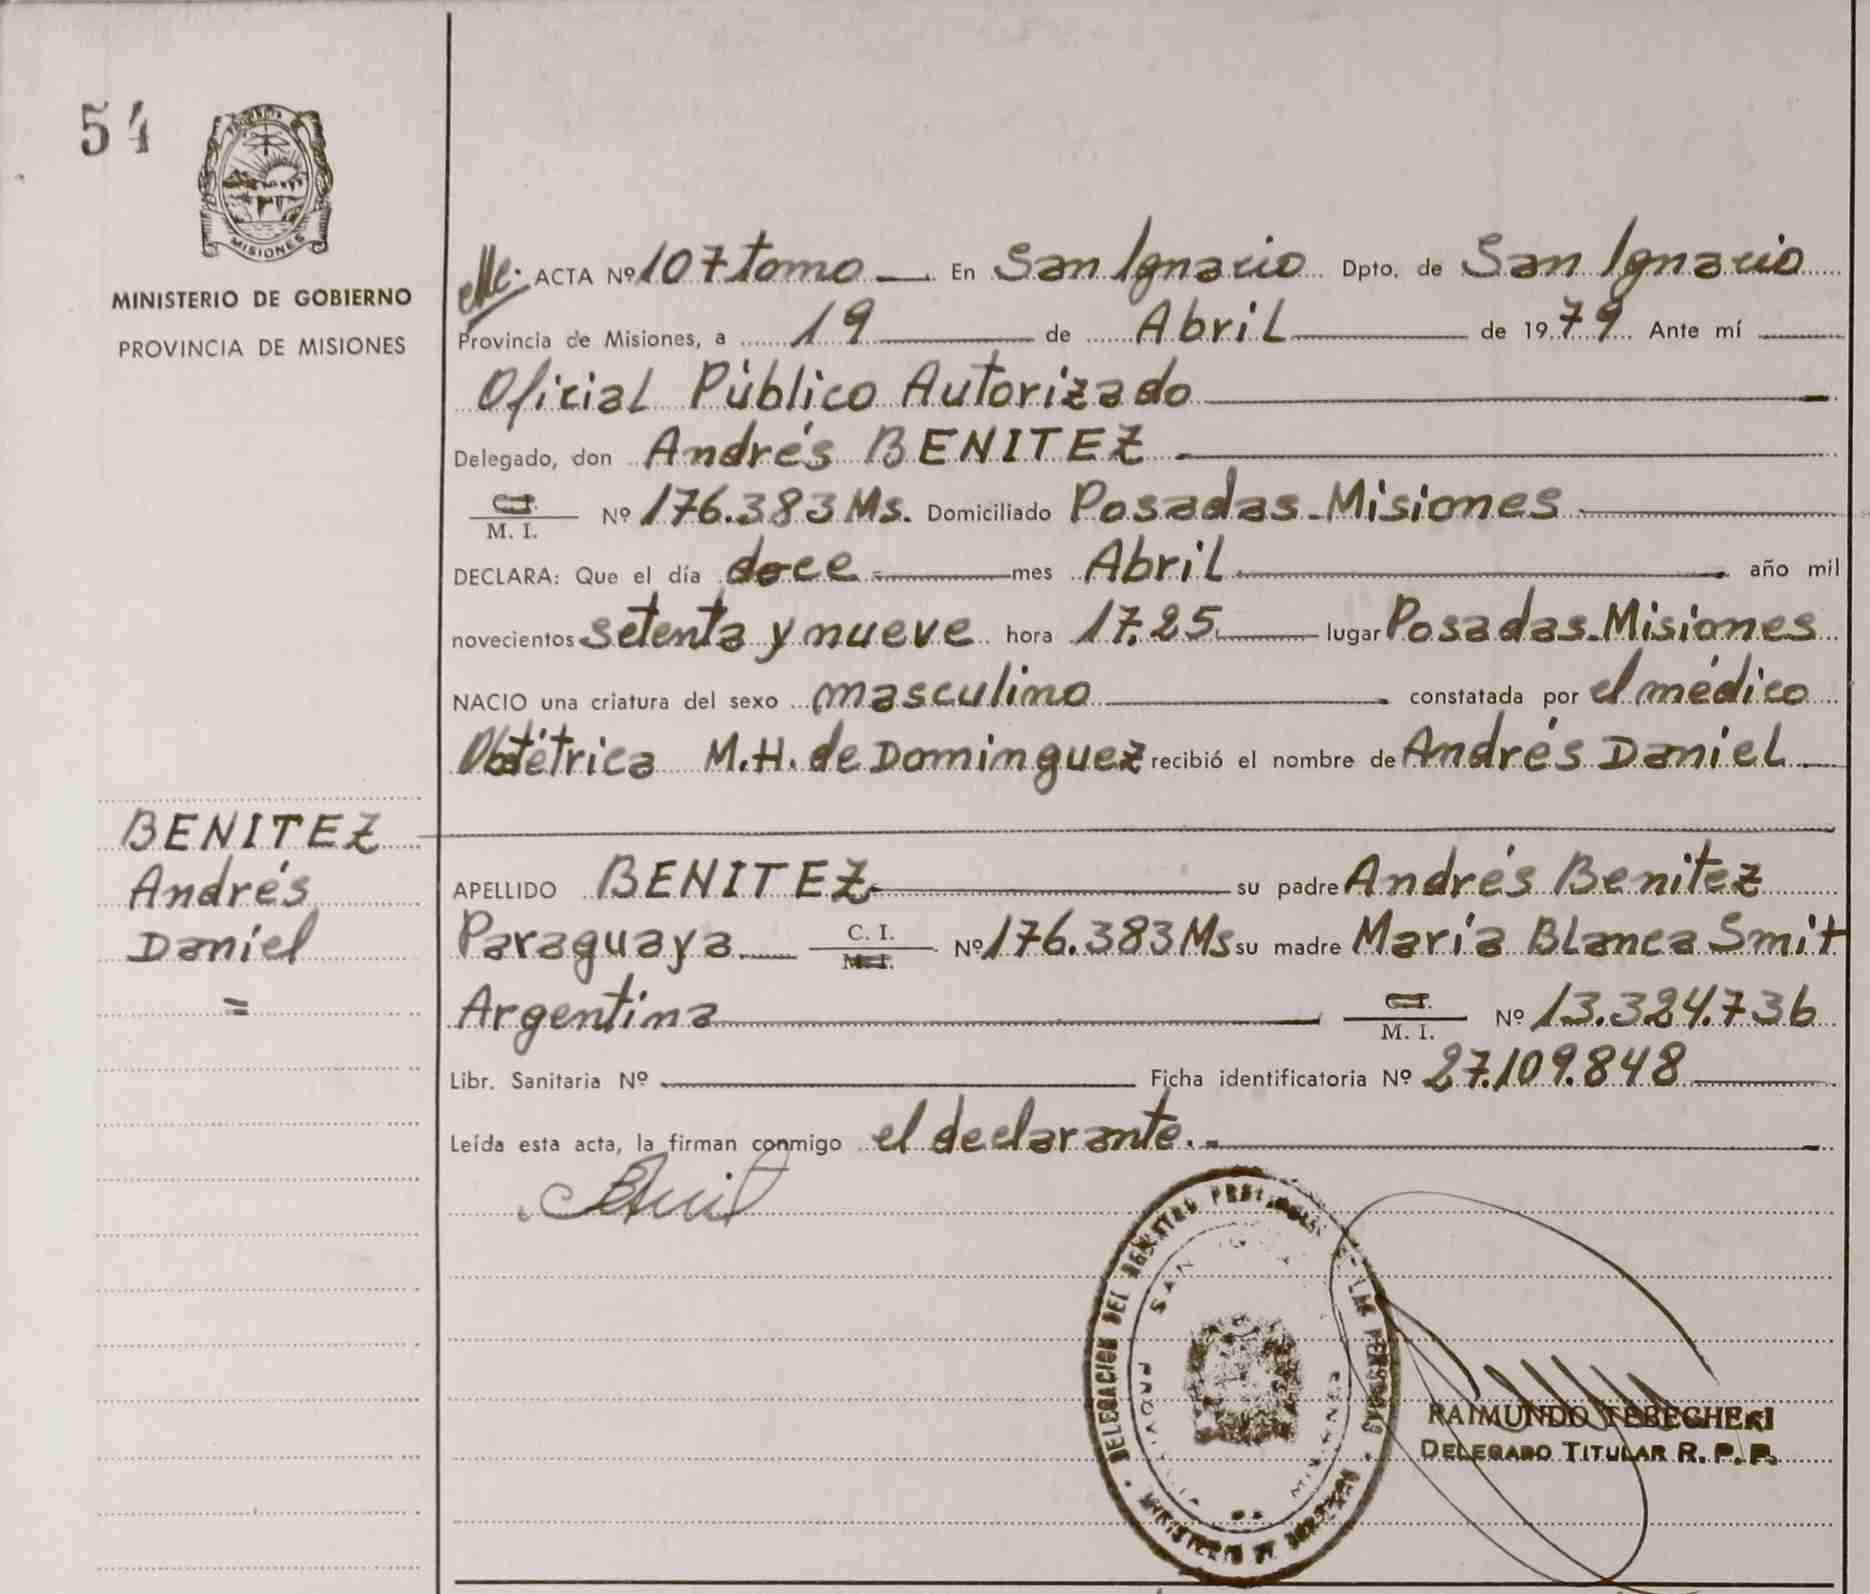 54
MISIONES
MINISTERIO DE GOBIERNO
PROVINCIA DE MISIONES
ACTA Nº 107 tomo — En San Ignacio Dpto. de San Ignacio
Provincia de Misiones, a 19 de Abril de 1979 Ante mí
Oficial Público Autorizado
Delegado, don Andrés BENITEZ
C.I.
M. I. Nº 176.383 Ms. Domiciliado Posadas - Misiones
DECLARA: Que el día doce mes Abril año mil
novecientos setenta y nueve hora 17.25 lugar Posadas - Misiones
NACIO una criatura del sexo masculino constatada por el médico
Obstétrica M.H. de Dominguez recibió el nombre de Andrés Daniel
BENITEZ
Andrés
Daniel
=
APELLIDO BENITEZ su padre Andrés Benitez
Paraguaya C. I. Nº 176.383 Ms su madre María Blanca Smit
M. I.
Argentina C.I. Nº 13.324.736
M. I.
Libr. Sanitaria Nº Ficha identificatoria Nº 27.109.848
Leída esta acta, la firman conmigo el declarante.
DELEGACION DEL REGISTRO PROVINCIAL DE LAS PERSONAS
MINISTERIO DE GOBIERNO
SAN
MISIONES
RAIMUNDO TEBECHERI
DELEGADO TITULAR R. P. P.